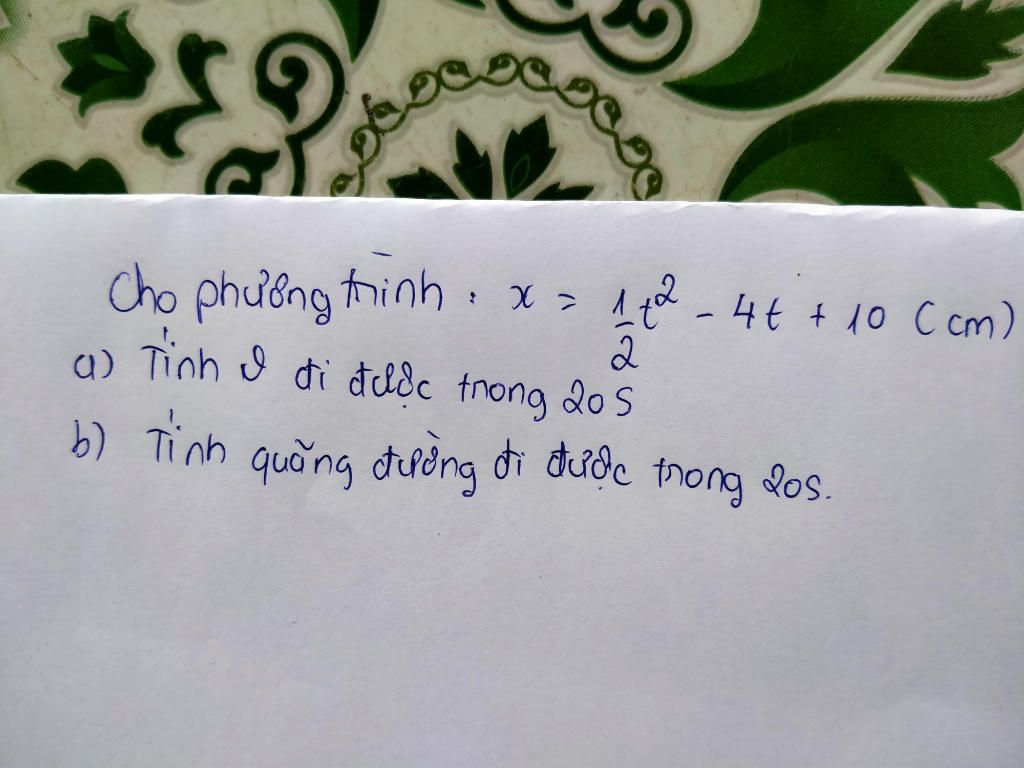 Cho phương trình : x = 1/2 t² - 4t + 10 (cm)
a) Tính v đi được trong 20s
b) Tính quãng đường đi được trong 20s.